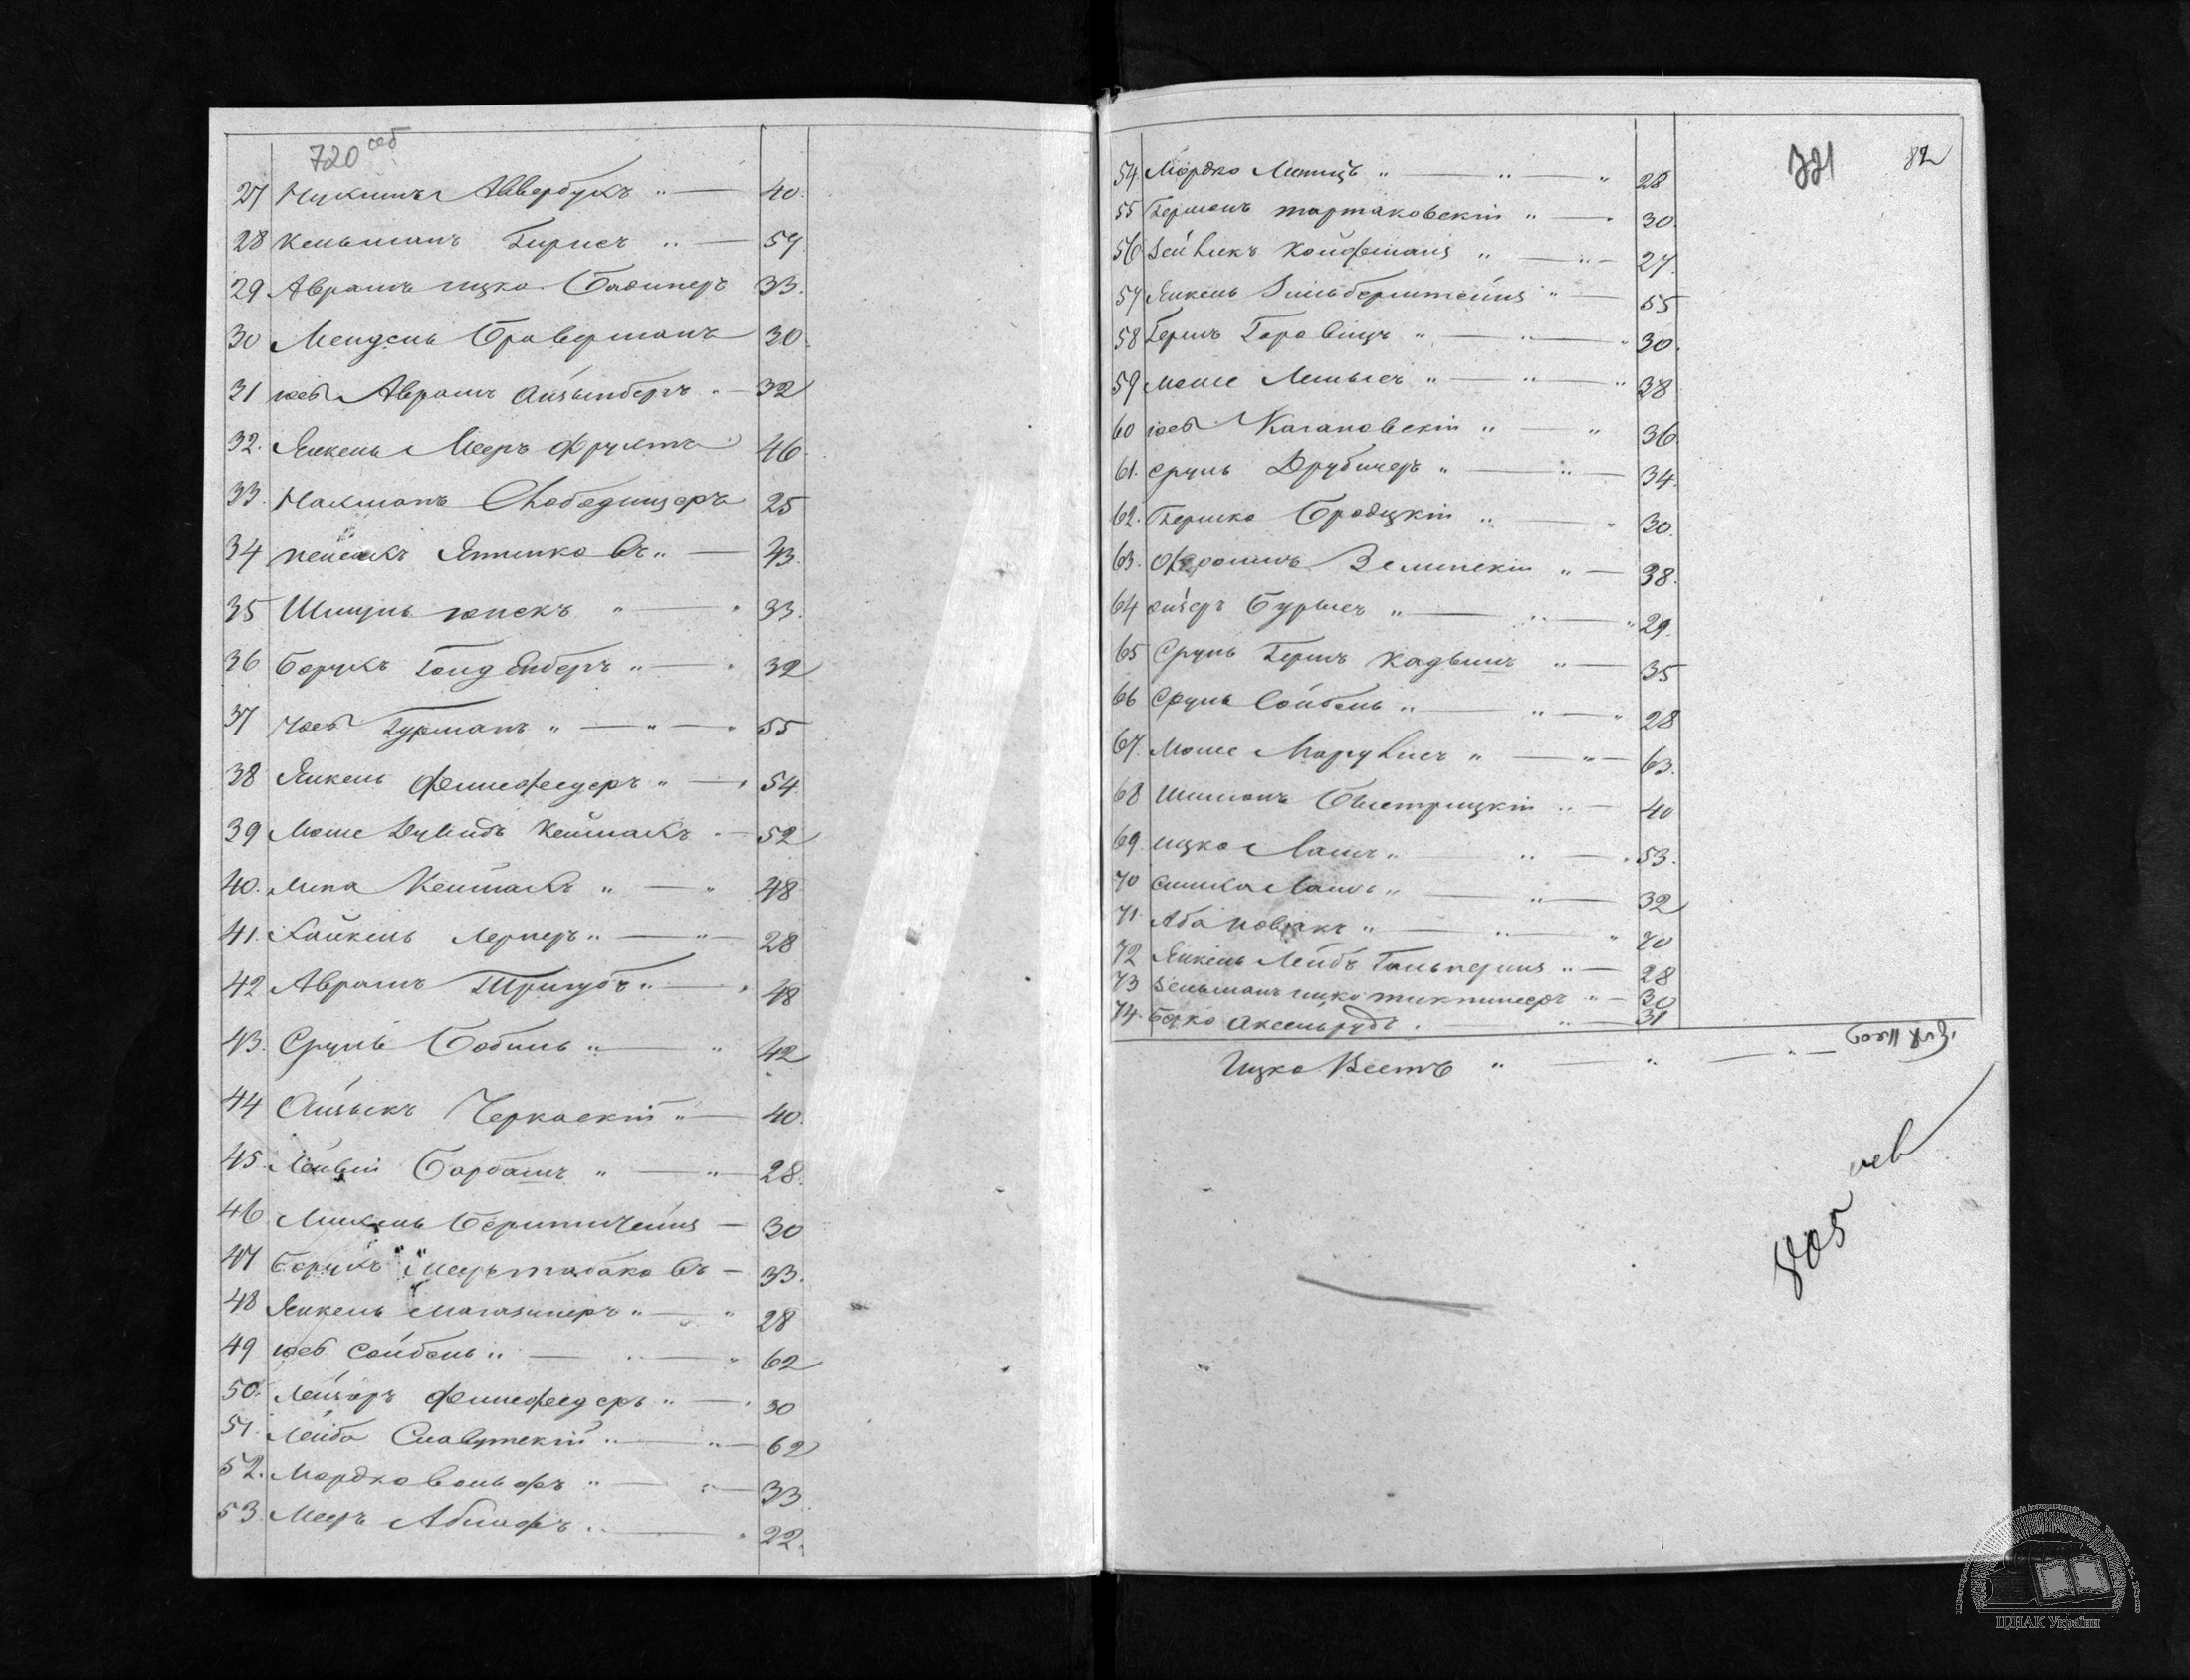 720 соб
27 Нухимъ Авербухъ " — 40.
28 Кельманъ Гирисъ " — 57.
29 Аврамъ Ицко Бадинеръ 33.
30 Мендель Браверманъ 30.
31 Іосъ Аврамъ Айзенбергъ " — 32
32. Янкель Мееръ Фруктъ 46.
33. Нахманъ Слободищеръ 25
34 Пейсахъ Ятинковъ " — 43.
35 Шмуль Юпскъ " — " 33.
36 Борухъ Голденбергъ " — " 32
37 Іосъ Гурманъ " — " — " 55
38 Янкель Финкефедеръ " — " 54
39 Моше Дувидъ Кеймахъ " — 52
40. Липа Кеймахъ " — " 48
41. Хайкель Лернеръ " — " — 28
42 Аврамъ Тригубъ " — " 48
43. Сруль Бобиль " — " 42
44 Айзыкъ Черкаскій " — 40.
45. Лейвій Барбашъ " — " — 28.
46 Михель Беринштейнъ — 30
47 Борухъ Меертабаковъ — 33.
48 Янкель Магазинеръ " — " 28
49 Іосъ Сойбель " — " — " 62
50. Лейзоръ Финкефедеръ " — " 30
51. Лейба Славутскій " — " — 62
52. Мордко Вольфъ " — " — 33.
53. Мееръ Абиафъ " — " 22.
721 82
54. Мордко Липицъ " — " — " 28
55 Берманъ Тартаковскій " — " 30.
56 Зейликъ Койфманъ " — " — 27.
57 Янкель Зильберштейнъ " — 55
58 Гершъ Горовицъ " — " — " 30.
59 Моше Лешысъ " — " — " 38
60 Іосъ Кагановскій " — " 36
61. Сруль Друбичеръ " — " — 34.
62. Бершко Бродцкій " — " 30.
63. Офроимъ Зелинскій " — 38.
64 Ойзеръ Бурысъ " — " — " 29.
65 Сруль Гершъ Кадышъ " — 35
66 Сруль Сойбель " — " — " 28
67. Моше Марулисъ " — " — 63.
68 Шимонъ Быстрицкій " — 40
69. Ицко Лашъ " — " — " 53.
70 Симха Лашъ " — " — 32
71. Аба Новакъ " — " — " 70
72 Янкель Лейбъ Гальперинъ " — 28
73 Зельманъ Ицко Тиктинеръ " — 30
74. Берко Аксельрудъ " — " — 31
Ицко Вестъ " — " — " —
805
ЦДІАК України